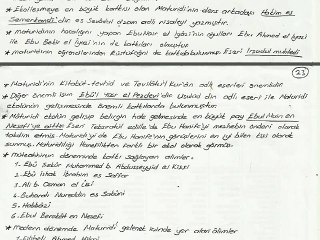 * Ekolleşmeye en büyük katkısı olan Maturidi'nin ders arkadaşı Hakim es
Semerkandi'dir es Sevadül a'zam adlı risaleyi yazmıştır.
* maturidinin hocalığını yapan Ebu Nasr el Iyazi'nin oğulları Ebu Ahmed el Iyazi
ile Ebu Bekir el Iyazi'nin de katkıları olmuştur
* maturidinin öğrencilerinden Rüstüfağni de katkıda bulunmuştur. Eseri İrşadul mühtedi
23
* Maturidi'nin Kitabüt-tevhid ve Tevilatü'l Kur'an adlı eserleri önemlidir
* Diğer önemli isim Ebü'l Yüsr el Pezdevi'dir Usulüd din adlı eseri ile Maturidi
ekolünün gelişmesinde önemli katkılarda bulunmuştur.
* Maturidi ekolün gelişip belirgin hale gelmesinde en büyük payı Ebul Muin en
Nesefi'ye aittir Eseri Tabsıratül edille'de Ebu Hanife'yi mezhebin önderi olarak
takdim etmiş Maturidi'yi de Ebu Hanife'nin görüşlerini en iyi bilen kişi olarak
sunmuş. Maturidiliği Hanefilikten farklı bir ekol olarak görmüş.
* müteahhirin döneminde katkı sağlayan alimler.
1. Ebu Şekur Muhammed b. Abdusseyyid el Kişşi
2. Ebu İshak İbrahim es Saffar
3. Ali b. Osman el Uşi
4. Buharalı Nureddin es Sabuni
5. Habbazi
6. Ebul Berekat en Nesefi
* modern dönemde Maturidi gelenek içinde yer alan alimler
1. Filibeli Ahmed Hilmi